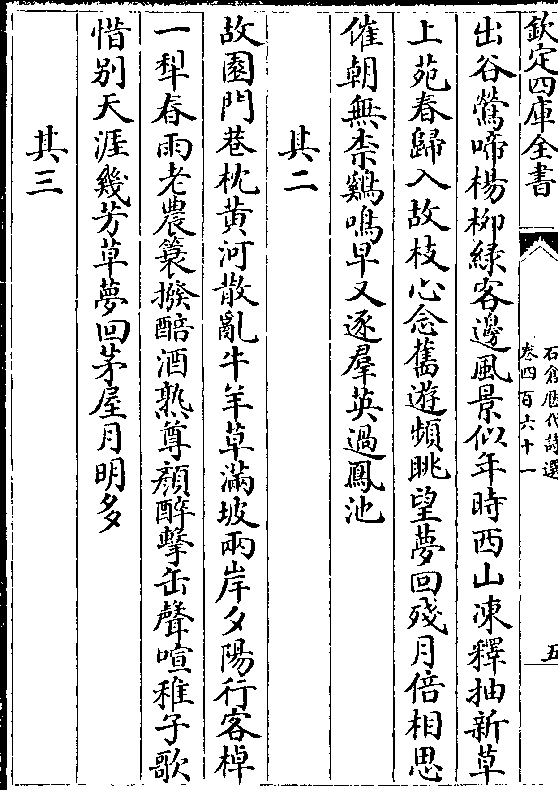 欽定四庫全書
石倉歷代詩選
卷四百六十一
五
出谷鶯啼楊柳緑客邊風景似年時西山凍釋抽新草
上苑春歸入故枝心念舊遊頻眺望夢回殘月倍相思
催朝無柰鷄鳴早又逐羣英過鳳池
其二
故園門巷枕黄河散亂牛羊草滿坡兩岸夕陽行客棹
一犁春雨老農簑撥醅酒熟尊顔醉擊缶聲喧稚子歌
惜别天涯幾芳草夢回茅屋月明多
其三